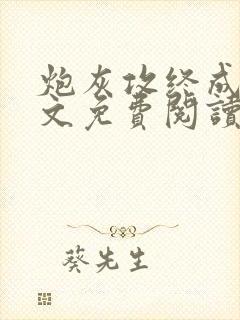 炮灰攻终成
文免費閱讀
葵先生